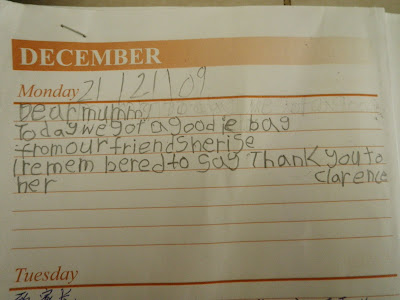 DECEMBER
Monday 21/12/09
Dear mummy
Today we got a goodie bag
from our friend sherise
I remem bered to say Thank you to
her clarence
Tuesday